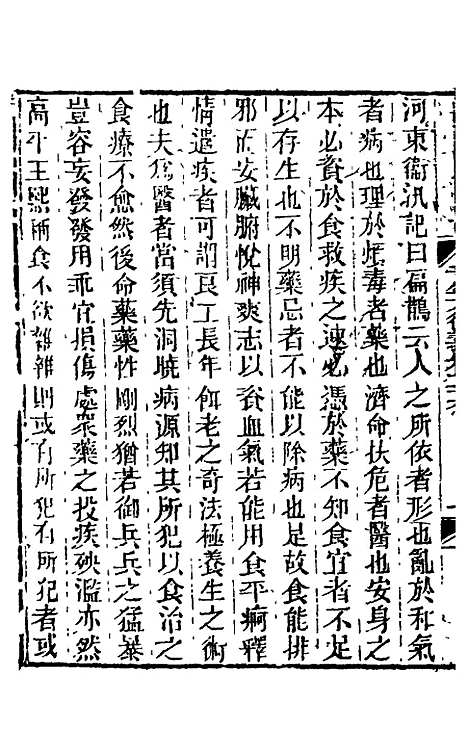 河東衞汛記曰扁鵲云人之所依者形也亂於和氣
者病也理於煩毒者藥也濟命扶危者醫也安身之
本必資於食救疾之速必憑於藥不知食宜者不足
以存生也不明藥忌者不能以除病也是故食能排
邪而安臟腑悅神爽志以資血氣若能用食平痾釋
情遣疾者可謂良工長年餌老之奇法極養生之術
也夫爲醫者當須先洞曉病源知其所犯以食治之
食療不愈然後命藥藥性剛烈猶若御兵兵之猛暴
豈容妄發發用乖宜損傷處眾藥之投疾殃濫亦然
高平王熙稱食不欲雜雜則或有所犯有所犯者或